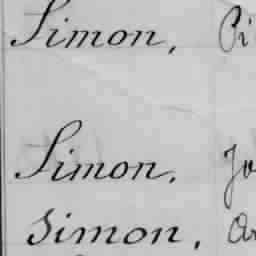 Simon, Pi
Simon, Jo
Simon, Ar